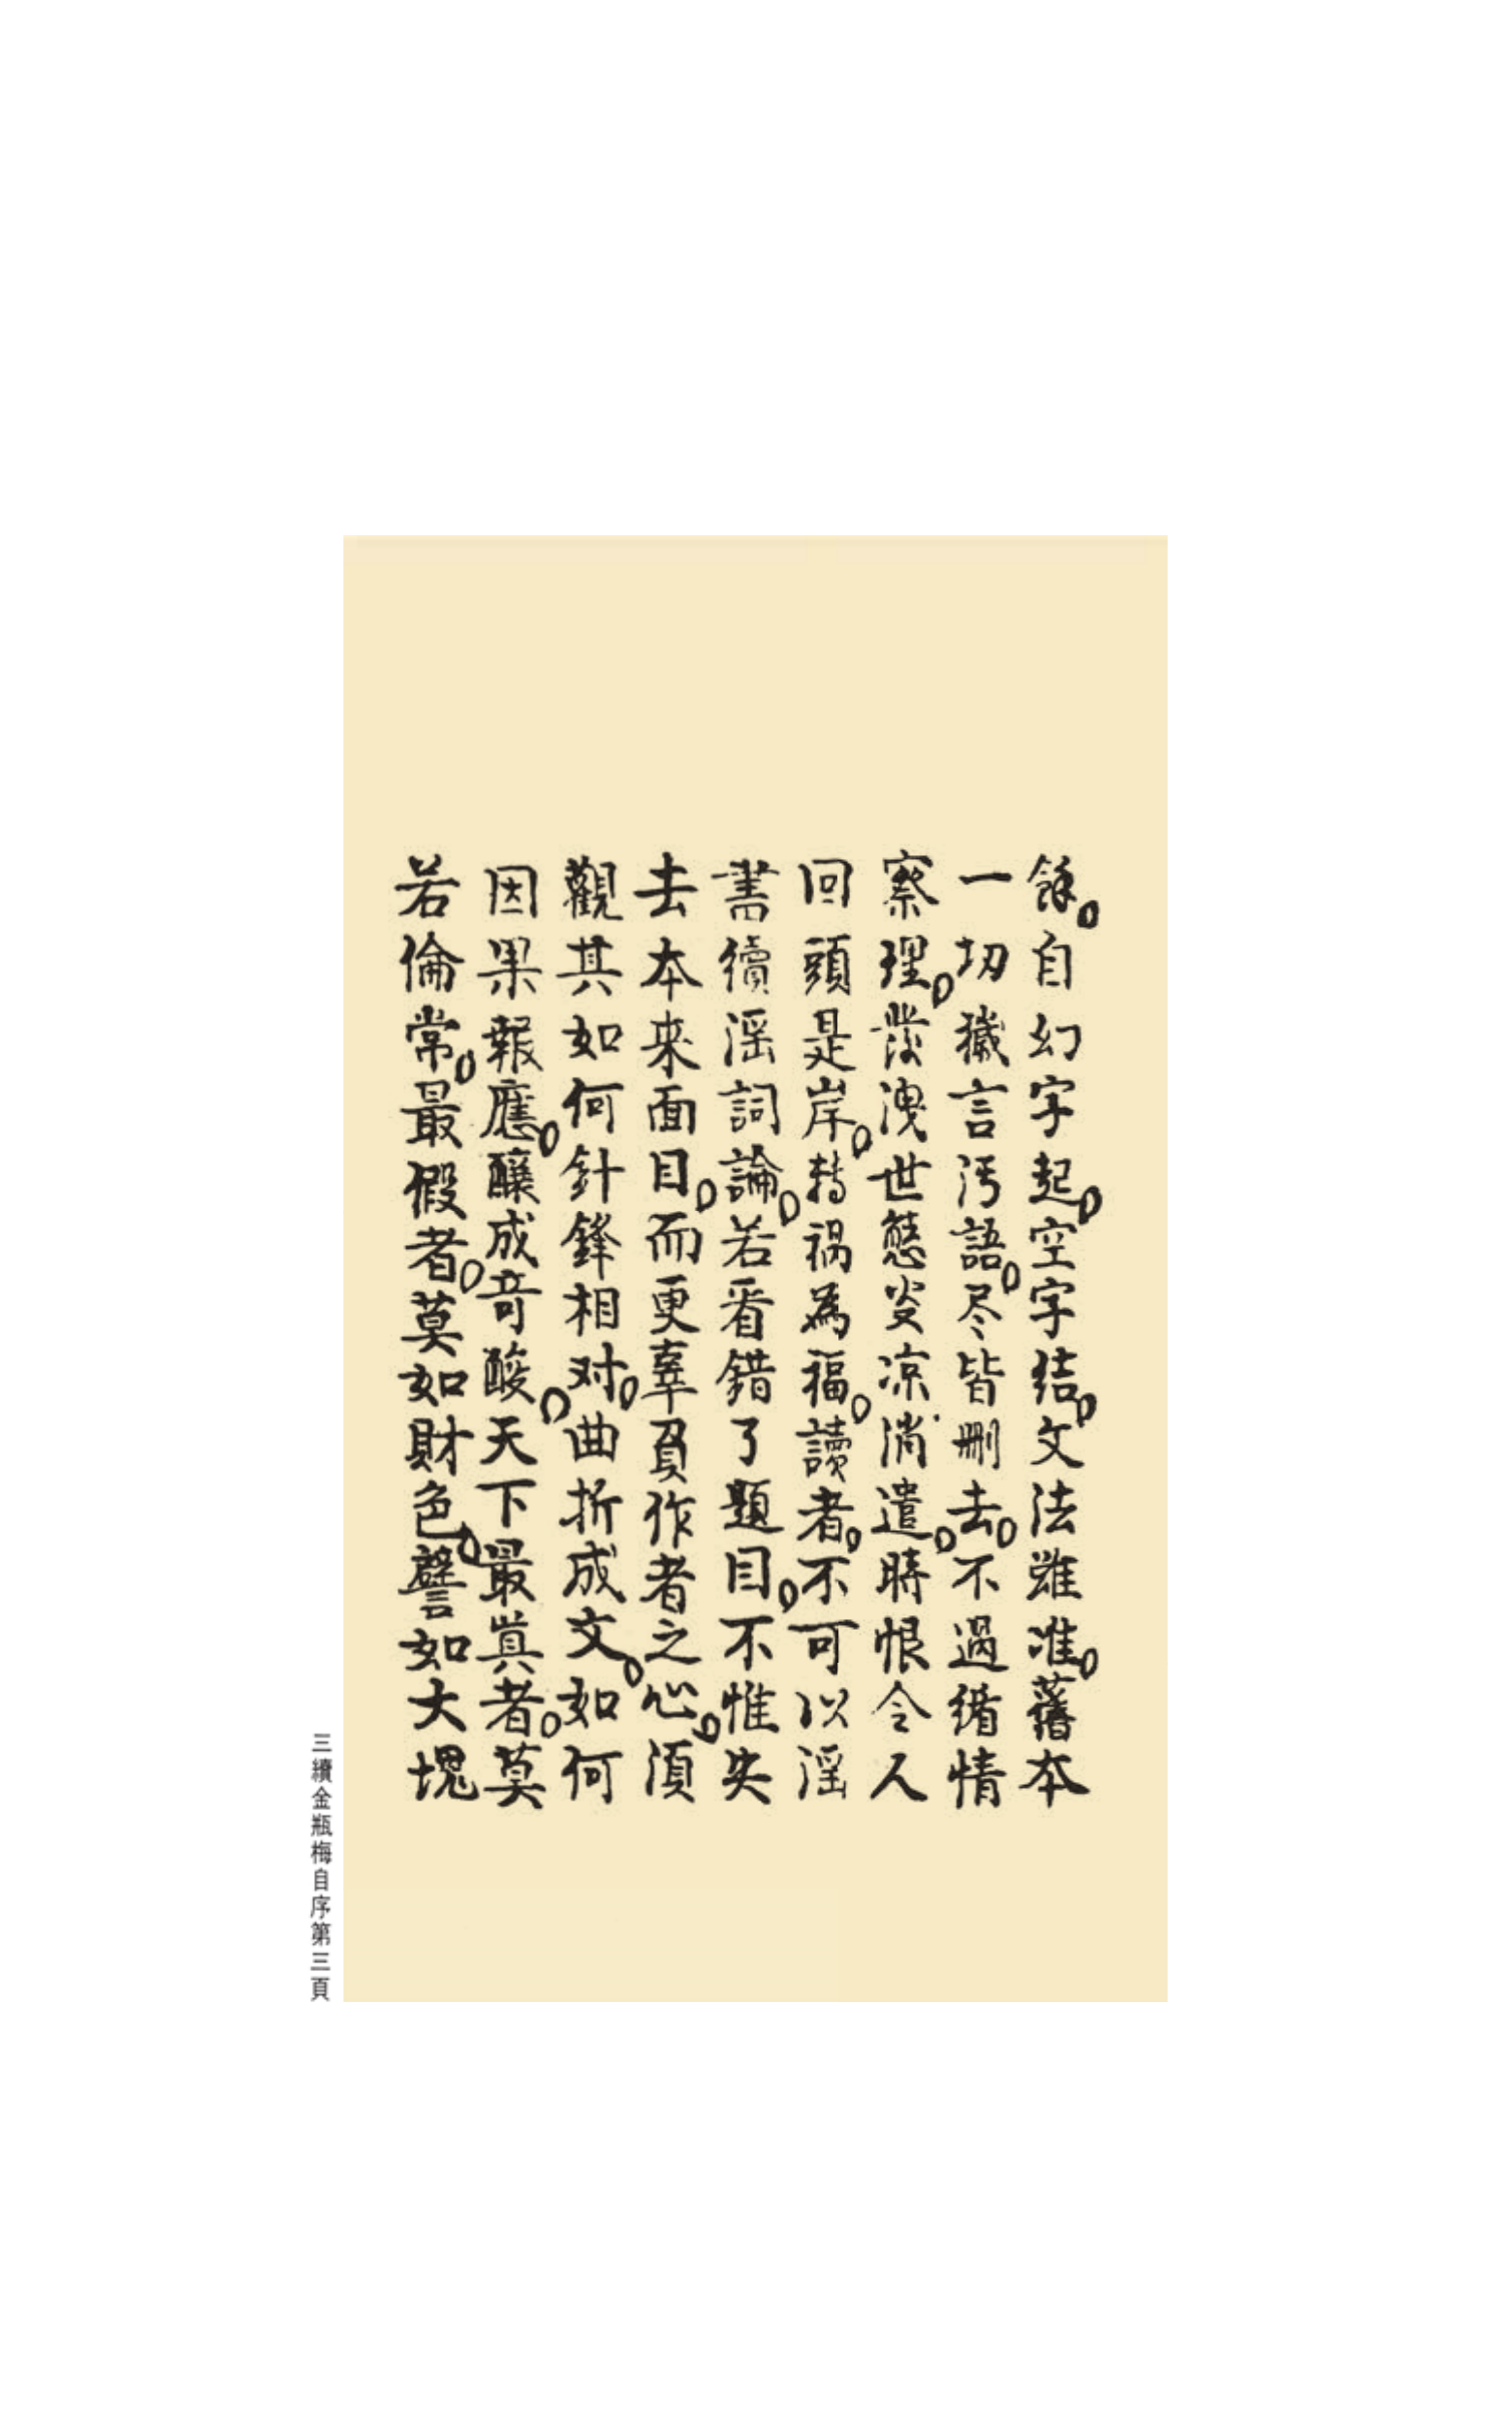 餘。自幻字起。空字結。文法雖准。舊本
一切穢言汚語。尽皆刪去。不過循情
察理。發洩世態炎凉消遣。時恨令人
回頭是岸。轉禍為福。讀者。不可以淫
書續淫詞論。若看錯了題目。不惟失
去本来面目。而更辜負作者之心。湏
觀其如何針鋒相对。曲折成文。如何
因果報應。釀成竒酸。天下最眞者。莫
若倫常。最假者。莫如財色。譬如大塊
三續金瓶梅自序第三頁